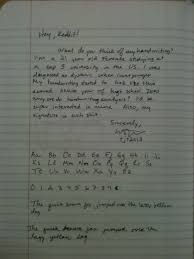 Hey, Reddit!
What do you think of my handwriting?
I'm a 21 year old female studying at
a top 5 university in the US. I was
diagnosed as dyslexic when I was younger.
My handwriting started to look like this
around senior year of high school. Does
any one do handwriting analysis? I'd be
super interested in mine. Also, my
signature is such shit.
Sincerely,
Aa Bb Cc Dd Ee Ff Gg Hh Ii Jj
Kk Ll Mm Nn Oo Pp Qq Rr Ss
Tt Uu Vv Ww Xx Yy Zz
0 1 2 3 4 5 6 7 8 9
The quick brown fox jumped over the lazy yellow
dog
The quick brown fox jumped over the
lazy yellow dog